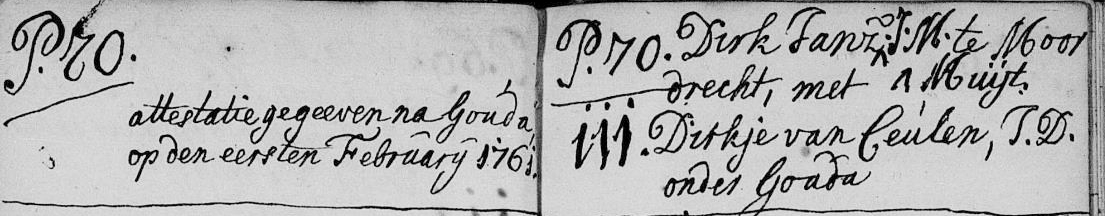 P. 70.
attestatie gegeeven na Gouda,
op den eersten Februarÿ 1761.
P. 70. Dirk Janz: J. M. te Moor
drecht, met ^ Muijt.
111. Dirkje van Ceulen, J. D.
onder Gouda